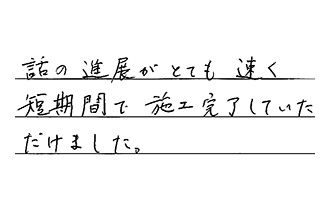 話の進展がとても速く
短期間で施工完了していた
だけました。